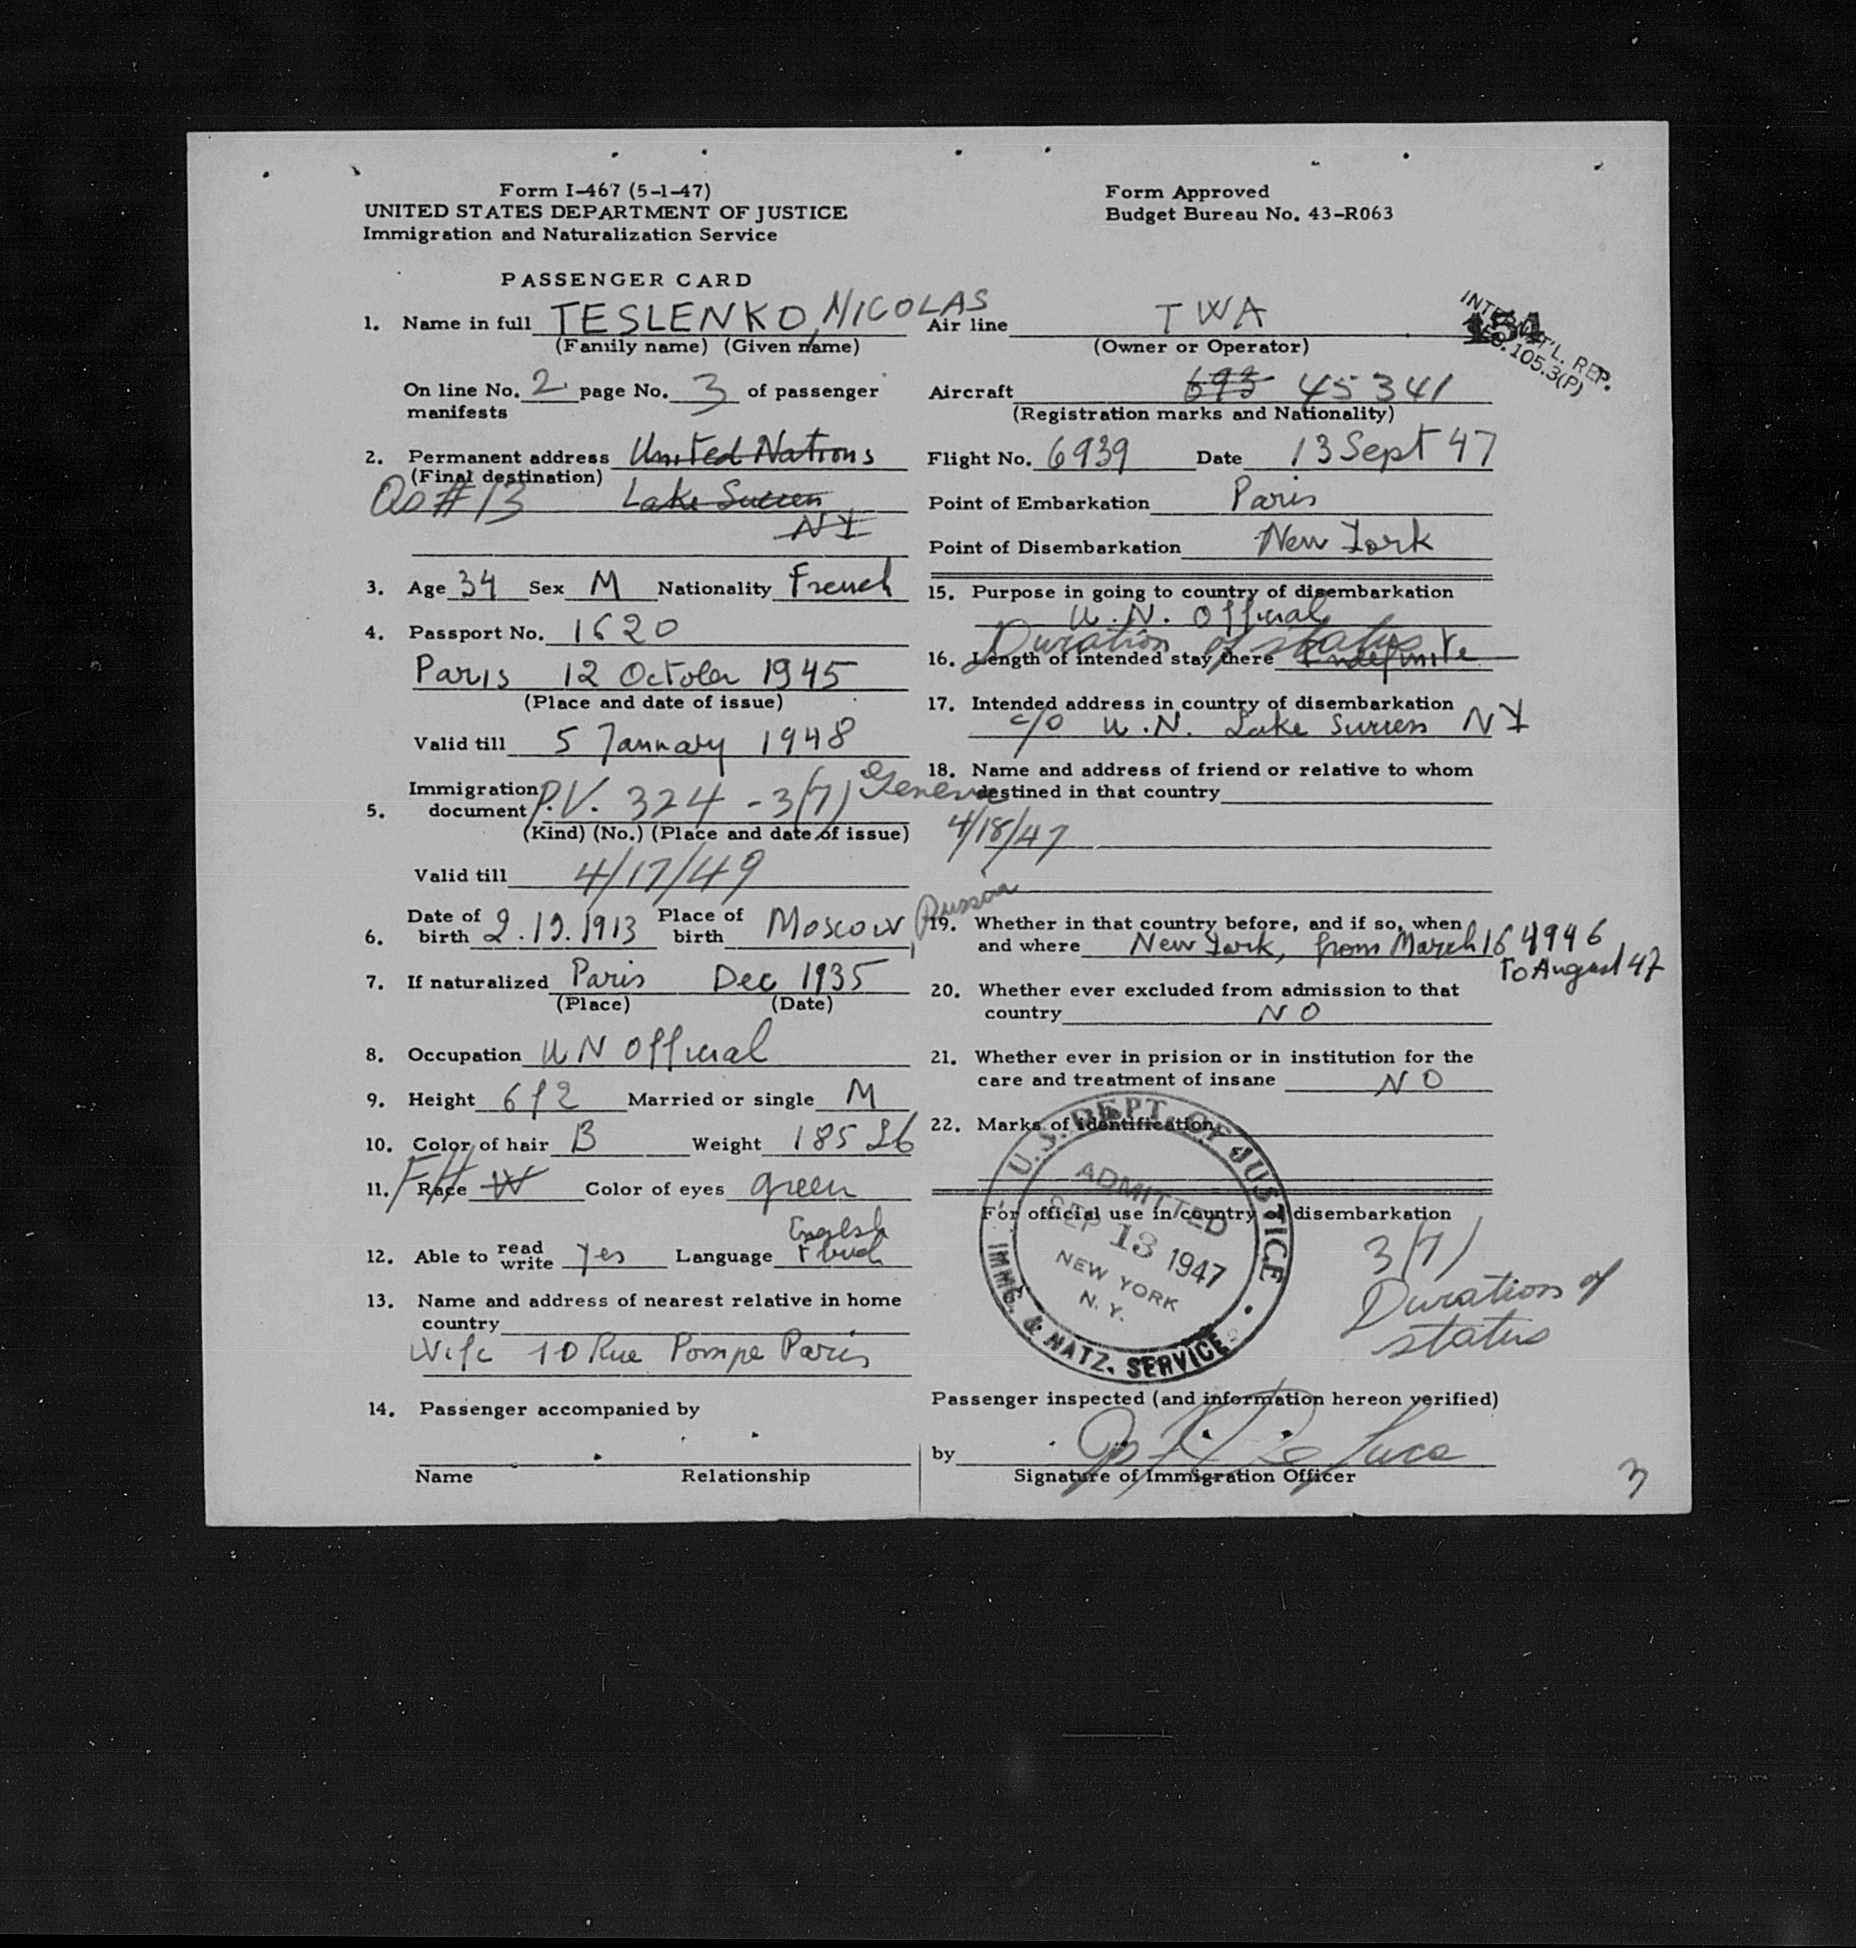 Form I-467 (5-1-47)
UNITED STATES DEPARTMENT OF JUSTICE
Immigration and Naturalization Service
Form Approved
Budget Bureau No. 43-R063
PASSENGER CARD
1. Name in full TESLENKO, NICOLAS
(Family name) (Given name)
On line No. 2 page No. 3 of passenger
manifests
2. Permanent address United Nations
(Final destination)
# 13 Lake Success
NY
3. Age 34 Sex M Nationality French
4. Passport No. 1620
Paris 12 October 1945
(Place and date of issue)
Valid till 5 January 1948
Immigration
5. document P.V. 324 - 3(7) Geneva
(Kind) (No.) (Place and date of issue)
4/18/47
Valid till 4/17/49
6. Date of birth 2.12.1913 Place of birth Moscow, Russia
7. If naturalized Paris Dec 1935
(Place) (Date)
8. Occupation UN Official
9. Height 6f2 Married or single M
10. Color of hair B Weight 185 Lb
11. Race W Color of eyes green
12. Able to read write yes Language English
13. Name and address of nearest relative in home
country
Wife 10 Rue Pompe Paris
14. Passenger accompanied by
Name Relationship
Air line TWA
(Owner or Operator)
154
INTERNAT'L. REP.
SEC. 105.3(P)
Aircraft 693 45341
(Registration marks and Nationality)
Flight No. 6939 Date 13 Sept 47
Point of Embarkation Paris
Point of Disembarkation New York
15. Purpose in going to country of disembarkation
U.N. Official
Duration of status
16. Length of intended stay there Indefinite
17. Intended address in country of disembarkation
c/o U.N. Lake Success NY
18. Name and address of friend or relative to whom
destined in that country
19. Whether in that country before, and if so, when
and where New York, from March 16 1946
To August 47
20. Whether ever excluded from admission to that
country NO
21. Whether ever in prision or in institution for the
care and treatment of insane NO
22. Marks of identification
For official use in country of disembarkation
U.S. DEPT. OF JUSTICE
ADMITTED
SEP 13 1947
NEW YORK
N.Y.
IMMG. & NATZ. SERVICE
3(7)
Duration of
status
Passenger inspected (and information hereon verified)
by
Signature of Immigration Officer
3